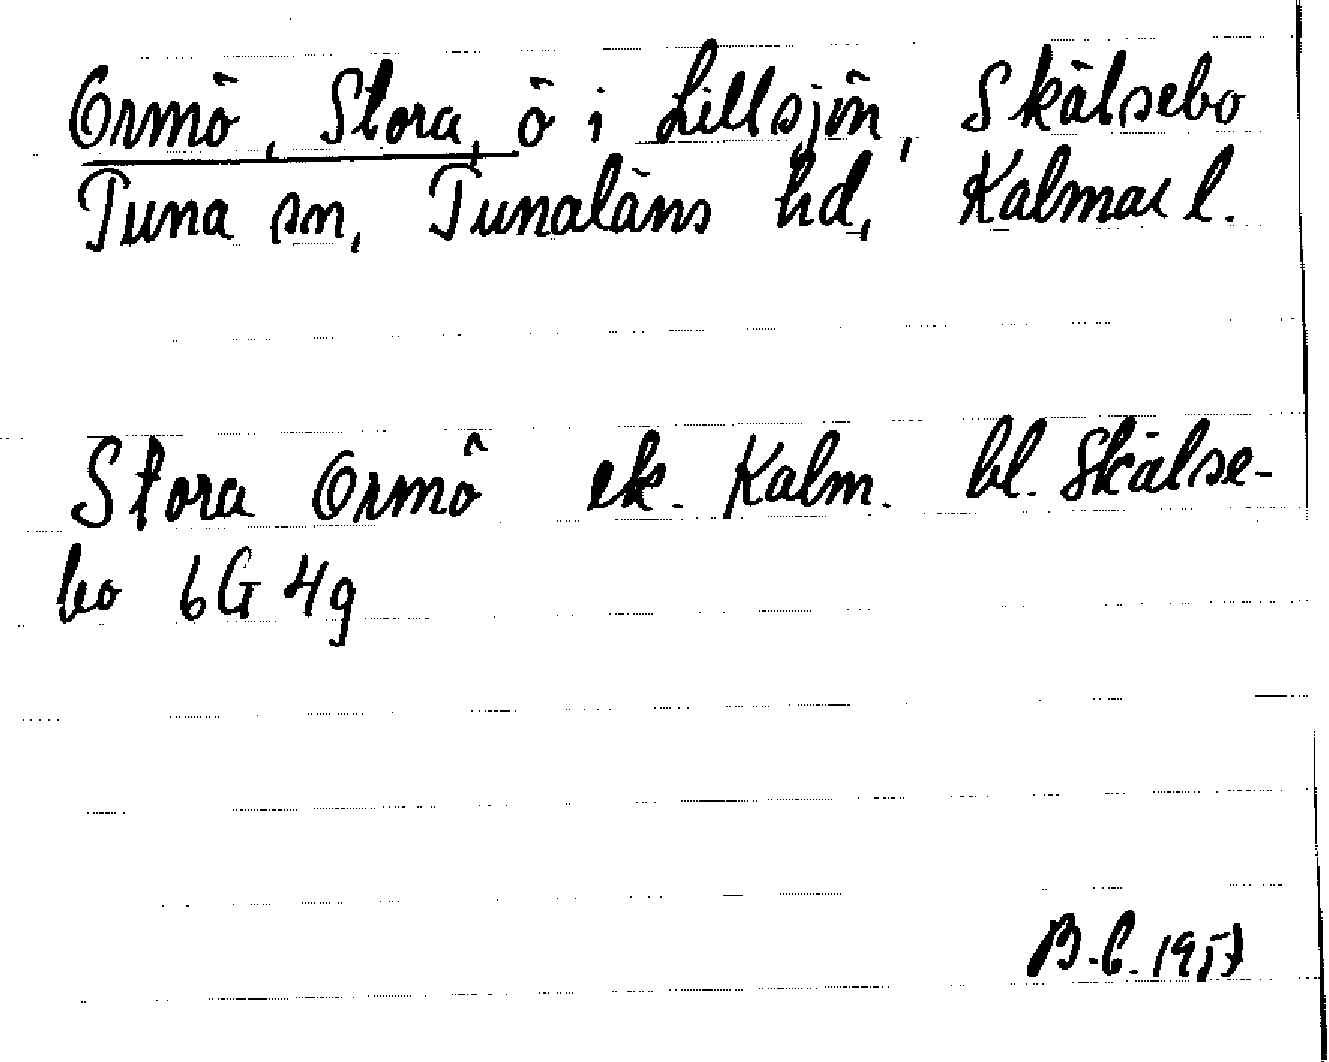 Ormö, Stora, ö i Lillsjön, Skälsebo
Tuna sn, Tunaläns hd, Kalmar l.
Stora Ormö ek. Kalm. bl. Skälse-
bo 6G 4g
B.C. 1957